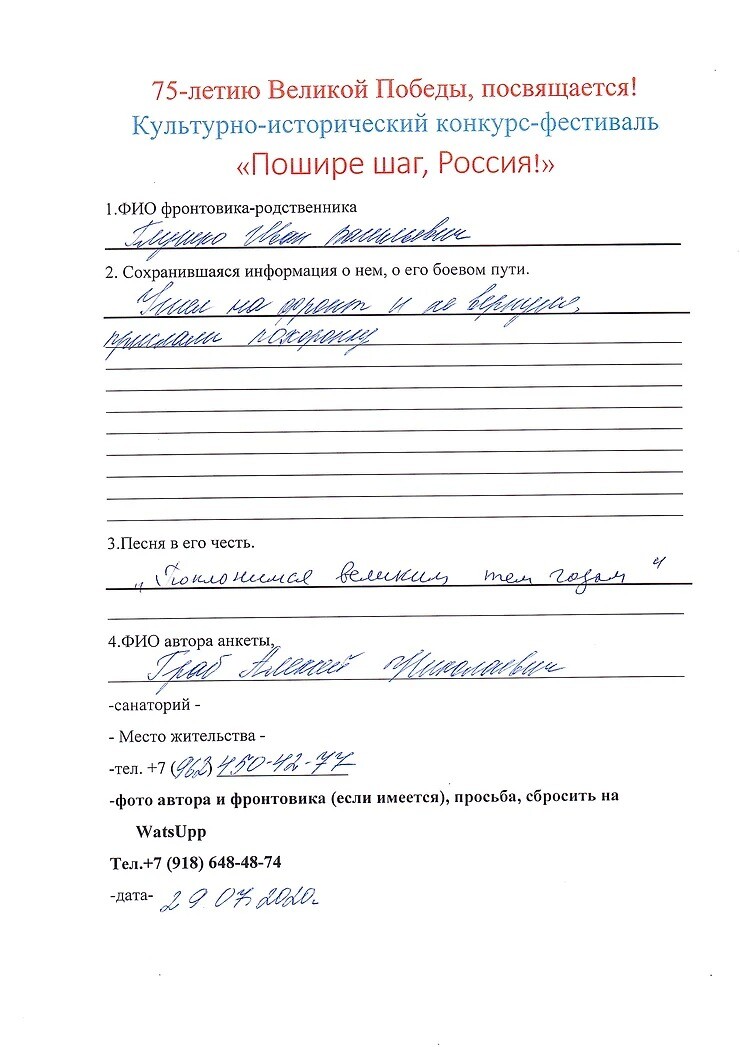 75-летию Великой Победы, посвящается!
Культурно-исторический конкурс-фестиваль
«Пошире шаг, Россия!»
1.ФИО фронтовика-родственника
Глушко Иван Васильевич
2. Сохранившаяся информация о нем, о его боевом пути.
Ушел на фронт и не вернулся,
прислали похоронку
3.Песня в его честь.
„Поклонимся великим тем годам"
4.ФИО автора анкеты,
Граб Алексей Николаевич
-санаторий -
- Место жительства -
-тел. +7 (962) 450-42-77
-фото автора и фронтовика (если имеется), просьба, сбросить на
WatsUpp
Тел.+7 (918) 648-48-74
-дата- 29 07. 2020г.